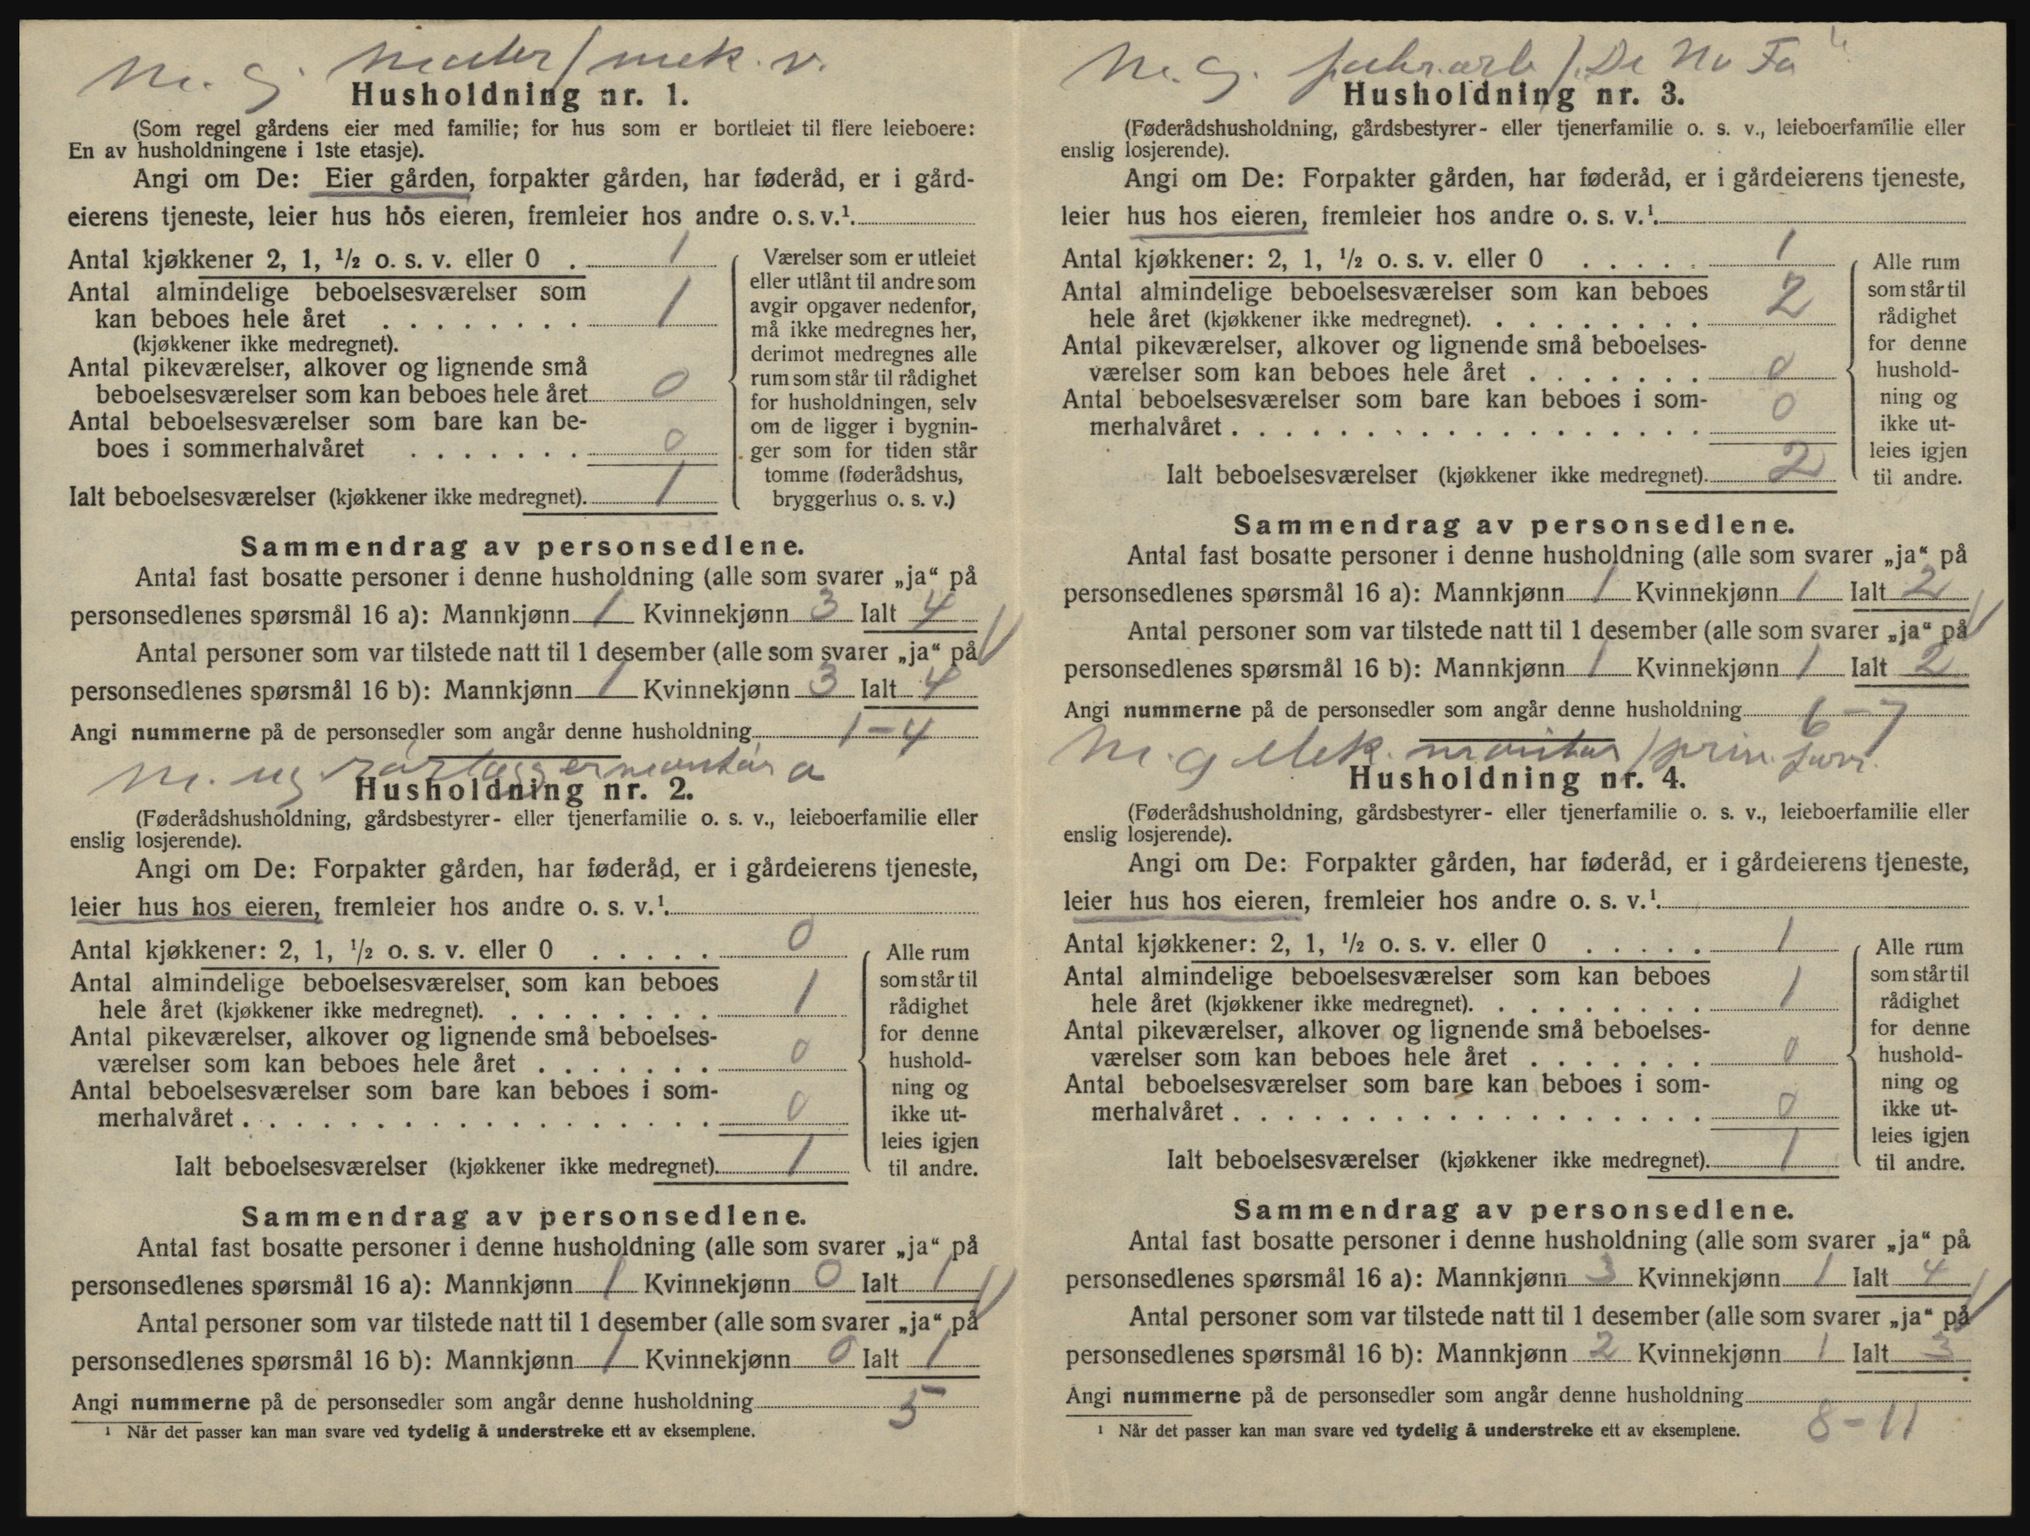 m. g. maler/mek. v.
Husholdning nr. 1.
(Som regel gårdens eier med familie; for hus som er bortleiet til flere leieboere:
En av husholdningene i 1ste etasje).
Angi om De: Eier gården, forpakter gården, har føderåd, er i gård-
eierens tjeneste, leier hus hos eieren, fremleier hos andre o. s. v.¹.
Antal kjøkkener 2, 1, ½ o. s. v. eller 0 . 1
Antal almindelige beboelsesværelser som
kan beboes hele året . . . . . . . . 1
(kjøkkener ikke medregnet).
Antal pikeværelser, alkover og lignende små
beboelsesværelser som kan beboes hele året 0
Antal beboelsesværelser som bare kan be-
boes i sommerhalvåret . . . . . . . 0
Ialt beboelsesværelser (kjøkkener ikke medregnet). 1
Værelser som er utleiet
eller utlånt til andre som
avgir opgaver nedenfor,
må ikke medregnes her,
derimot medregnes alle
rum som står til rådighet
for husholdningen, selv
om de ligger i bygnin-
ger som for tiden står
tomme (føderådshus,
bryggerhus o. s. v.)
Sammendrag av personsedlene.
Antal fast bosatte personer i denne husholdning (alle som svarer „ja“ på
personsedlenes spørsmål 16 a): Mannkjønn 1 Kvinnekjønn 3 Ialt 4
Antal personer som var tilstede natt til 1 desember (alle som svarer „ja“ på
personsedlenes spørsmål 16 b): Mannkjønn 1 Kvinnekjønn 3 Ialt 4
Angi nummerne på de personsedler som angår denne husholdning 1-4
m. ug rørleggermontør a
Husholdning nr. 2.
(Føderådshusholdning, gårdsbestyrer- eller tjenerfamilie o. s. v., leieboerfamilie eller
enslig losjerende).
Angi om De: Forpakter gården, har føderåd, er i gårdeierens tjeneste,
leier hus hos eieren, fremleier hos andre o. s. v.¹.
Antal kjøkkener: 2, 1, ½ o. s. v. eller 0 . . . . . 0
Antal almindelige beboelsesværelser som kan beboes
hele året (kjøkkener ikke medregnet). . . . . . . . . 1
Antal pikeværelser, alkover og lignende små beboelses-
værelser som kan beboes hele året . . . . . . . 0
Antal beboelsesværelser som bare kan beboes i som-
merhalvåret . . . . . . . . . . . . . . . . . . 0
Ialt beboelsesværelser (kjøkkener ikke medregnet). 1
Alle rum
som står til
rådighet
for denne
hushold-
ning og
ikke ut-
leies igjen
til andre.
Sammendrag av personsedlene.
Antal fast bosatte personer i denne husholdning (alle som svarer „ja“ på
personsedlenes spørsmål 16 a): Mannkjønn 1 Kvinnekjønn 0 Ialt 1
Antal personer som var tilstede natt til 1 desember (alle som svarer „ja“ på
personsedlenes spørsmål 16 b): Mannkjønn 1 Kvinnekjønn 0 Ialt 1
Angi nummerne på de personsedler som angår denne husholdning 5
¹ Når det passer kan man svare ved tydelig å understreke ett av eksemplene.
m. g. fabr.arb/„De No Fa“
Husholdning nr. 3.
(Føderådshusholdning, gårdsbestyrer- eller tjenerfamilie o. s. v., leieboerfamilie eller
enslig losjerende).
Angi om De: Forpakter gården, har føderåd, er i gårdeierens tjeneste,
leier hus hos eieren, fremleier hos andre o. s. v.¹.
Antal kjøkkener: 2, 1, ½ o. s. v. eller 0 . . . . . 1
Antal almindelige beboelsesværelser som kan beboes
hele året (kjøkkener ikke medregnet). . . . . . . . . 2
Antal pikeværelser, alkover og lignende små beboelses-
værelser som kan beboes hele året . . . . . . . 0
Antal beboelsesværelser som bare kan beboes i som-
merhalvåret . . . . . . . . . . . . . . . . . . 0
Ialt beboelsesværelser (kjøkkener ikke medregnet). 2
Alle rum
som står til
rådighet
for denne
hushold-
ning og
ikke ut-
leies igjen
til andre.
Sammendrag av personsedlene.
Antal fast bosatte personer i denne husholdning (alle som svarer „ja“ på
personsedlenes spørsmål 16 a): Mannkjønn 1 Kvinnekjønn 1 Ialt 2
Antal personer som var tilstede natt til 1 desember (alle som svarer „ja“ på
personsedlenes spørsmål 16 b): Mannkjønn 1 Kvinnekjønn 1 Ialt 2
Angi nummerne på de personsedler som angår denne husholdning 6-7
m. g elek. montør/priv.
Husholdning nr. 4.
(Føderådshusholdning, gårdsbestyrer- eller tjenerfamilie o. s. v., leieboerfamilie eller
enslig losjerende).
Angi om De: Forpakter gården, har føderåd, er i gårdeierens tjeneste,
leier hus hos eieren, fremleier hos andre o. s. v.¹.
Antal kjøkkener: 2, 1, ½ o. s. v. eller 0 . . . . . 1
Antal almindelige beboelsesværelser som kan beboes
hele året (kjøkkener ikke medregnet). . . . . . . . . 1
Antal pikeværelser, alkover og lignende små beboelses-
værelser som kan beboes hele året . . . . . . . 0
Antal beboelsesværelser som bare kan beboes i som-
merhalvåret . . . . . . . . . . . . . . . . . . 0
Ialt beboelsesværelser (kjøkkener ikke medregnet). 1
Alle rum
som står til
rådighet
for denne
hushold-
ning og
ikke ut-
leies igjen
til andre.
Sammendrag av personsedlene.
Antal fast bosatte personer i denne husholdning (alle som svarer „ja“ på
personsedlenes spørsmål 16 a): Mannkjønn 3 Kvinnekjønn 1 Ialt 4
Antal personer som var tilstede natt til 1 desember (alle som svarer „ja“ på
personsedlenes spørsmål 16 b): Mannkjønn 2 Kvinnekjønn 1 Ialt 3
Angi nummerne på de personsedler som angår denne husholdning
8-11
¹ Når det passer kan man svare ved tydelig å understreke ett av eksemplene.